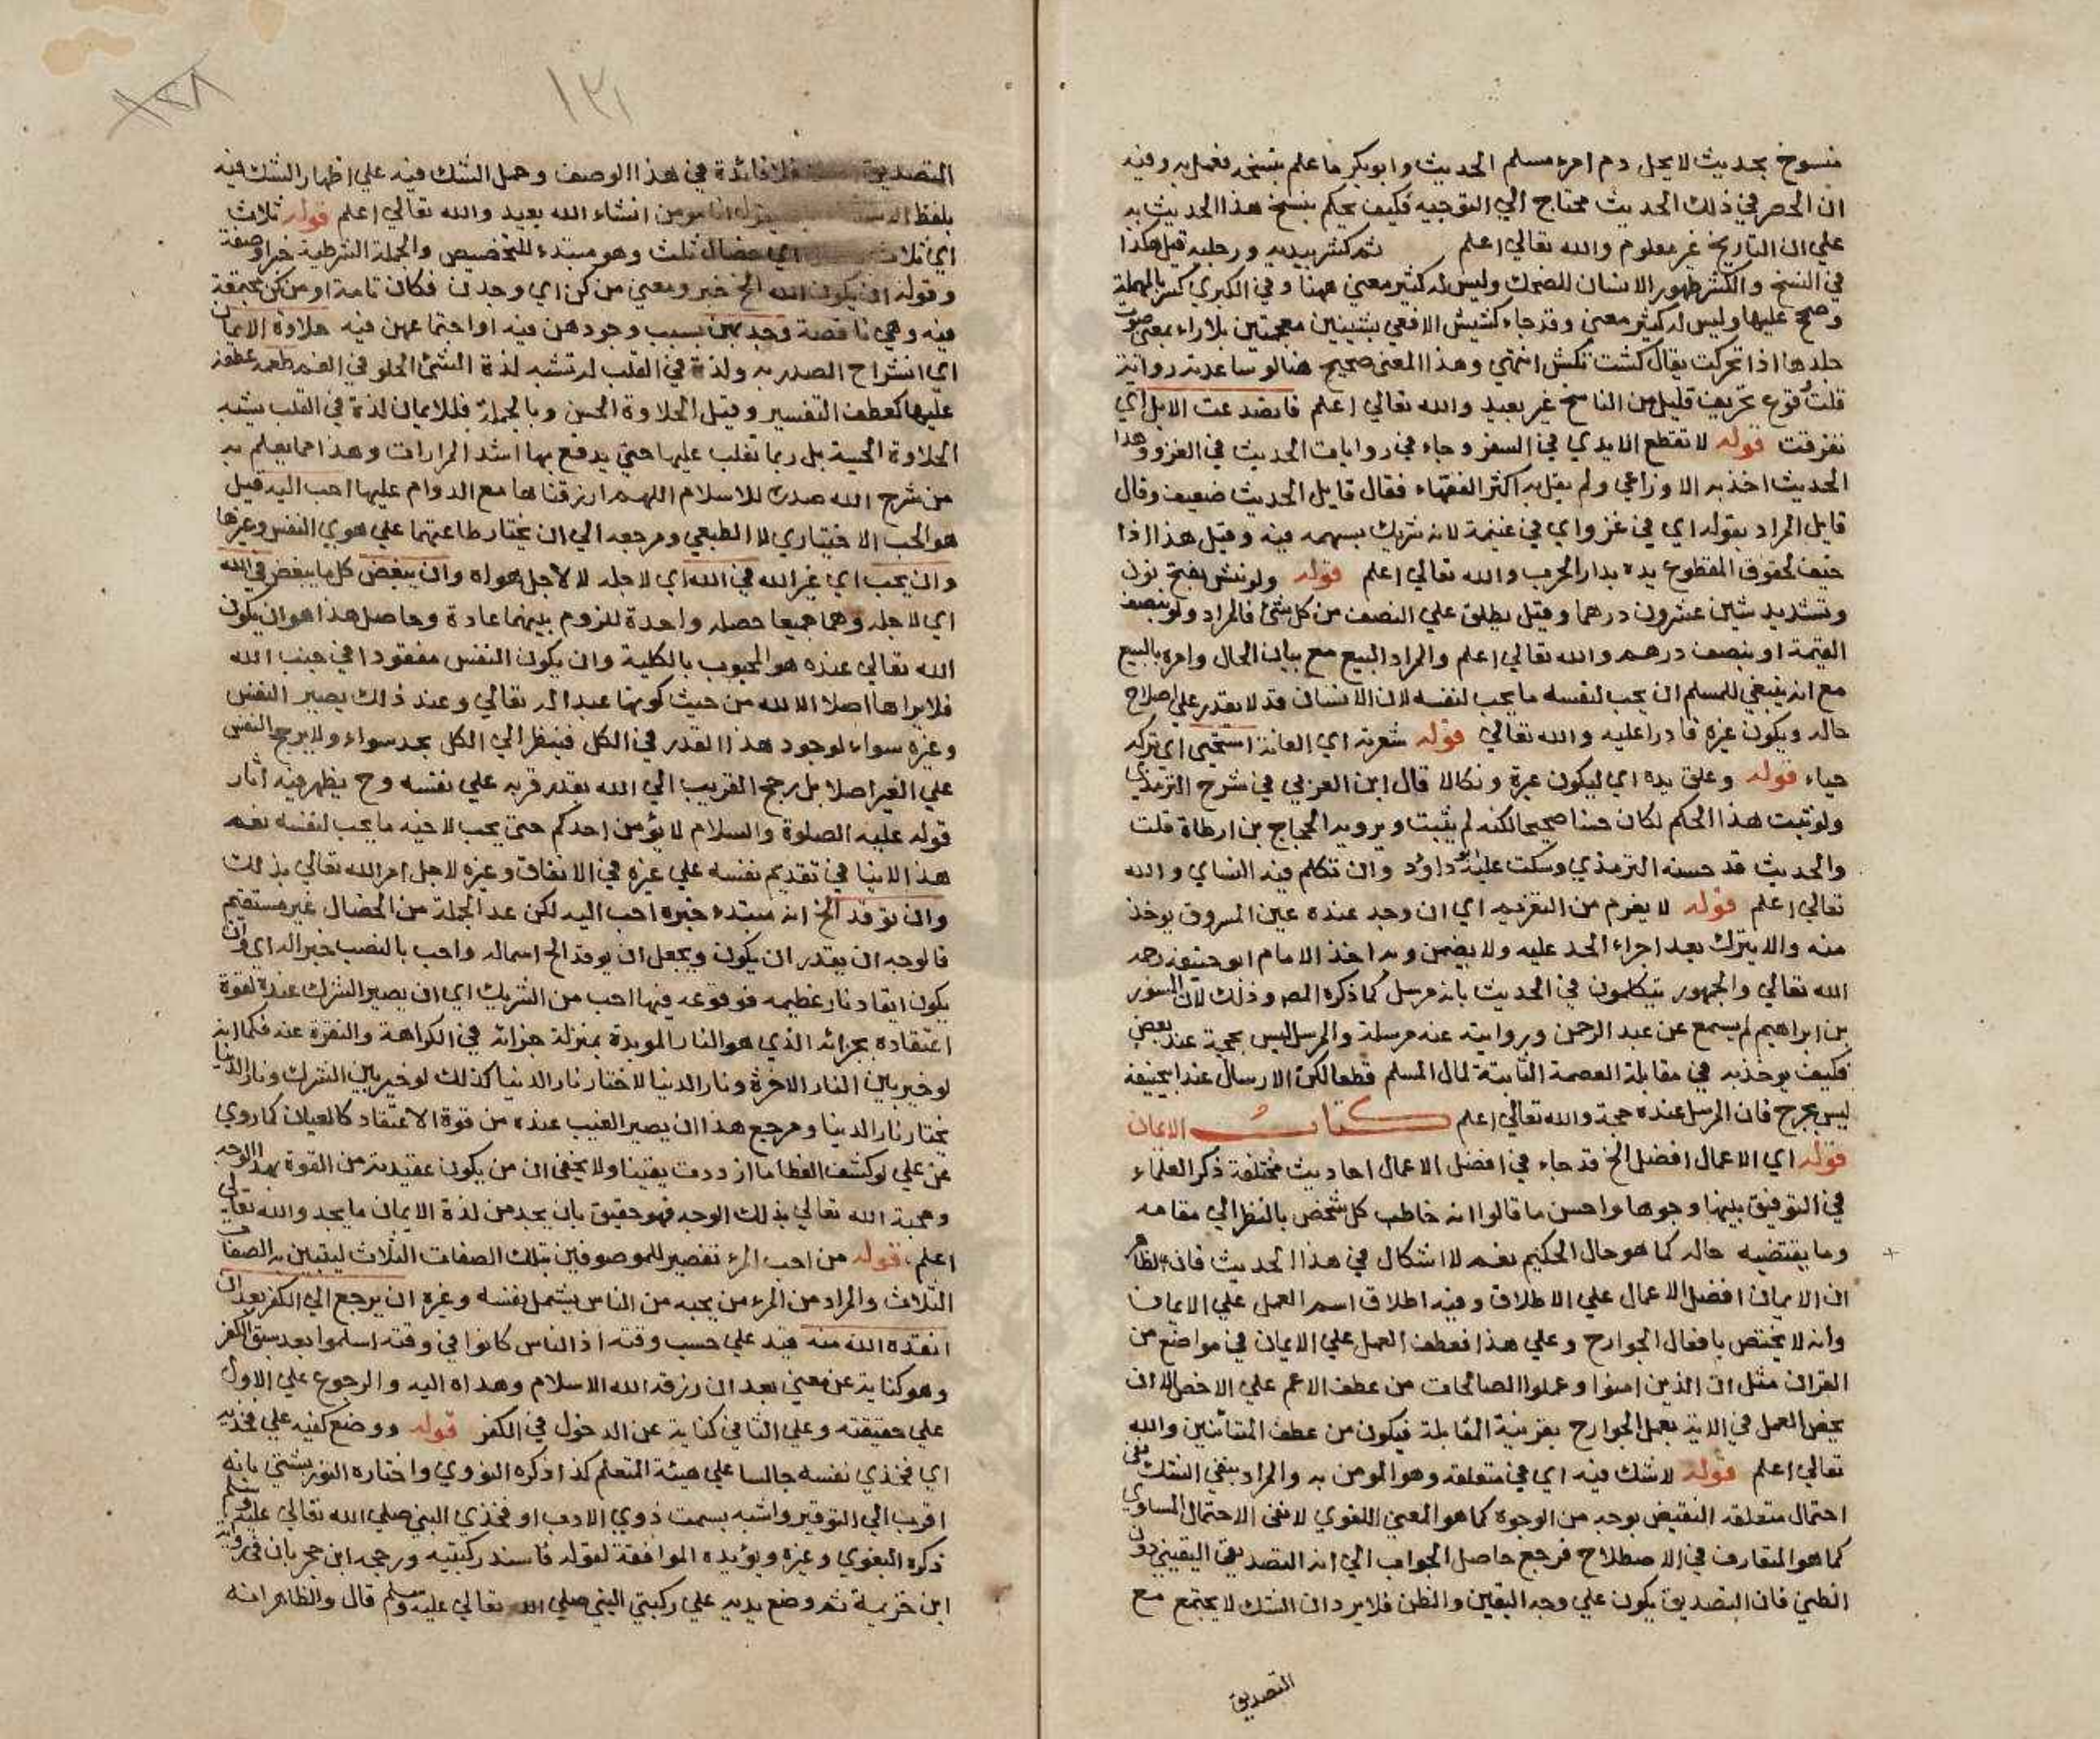 منسوخ بحديث لا يحل دم امرء مسلم الحديث وابوبكر ما علم بنسخه فعمل به وفيه
ان الحصر في ذلك الحديث محتاج الي التوجيه فكيف يحكم بنسخ هذا الحديث به
علي ان التاريخ غير معلوم والله تعالي اعلم ثم كشر بيديه ورجليه قيل هكذا
في النسخ والكشر ظهور الاسنان للضحك وليس له كثير معني ههنا وفي الكبري كسر بالمهملة
وصح عليها وليس له كثير معني وقد جاء كشيش الافعي بشينين معجمتين بلا راء بمعني صوت
جلدها اذا تحركت يقال كشت تكش انتهي وهذا المعني صحيح هنا لو ساعدته رواية
قلت وقوع تحريف قليل من الناسخ غير بعيد والله تعالي اعلم فانصدعت الابل اي
تفرقت قوله لا تقطع الايدي في السفر وجاء في روايات الحديث في الغزو وهذا
الحديث اخذ به الاوزاعي ولم يقل به اكثر الفقهاء فقال قايل الحديث ضعيف وقال
قايل المراد بقوله اي في غزو اي في غنيمة لانه شريك بسهمه فيه وقيل هذا اذا
خيف لحقوق المقطوع يده بدار الحرب والله تعالي اعلم قوله ولو بنش بفتح نون
وتشديد شين عشرون درهما وقيل يطلق علي النصف من كل شئ فالمراد ولو بنصف
القيمة او بنصف درهم والله تعالي اعلم والمراد البيع مع بيان الحال وامره بالبيع
مع انه ينبغي للمسلم ان يحب لنفسه ما يحب لنفسه لان الانسان قد لا يقدر علي اصلاح
حاله ويكون غيره قادرا عليه والله تعالي قوله شعرته اي العانة استحيى اي تركه
حياء قوله وعلق يده اي ليكون عبرة ونكالا قال ابن العربي في شرح الترمذي
ولو ثبت هذا الحكم لكان حسنا صحيحا لكنه لم يثبت ويرويه الحجاج بن ارطاة قلت
والحديث قد حسنه الترمذي وسكت عليه ابو داود وان تكلم فيه النساي والله
تعالي اعلم قوله لا يغرم من التغريم اي ان وجد عنده عين المسروق يوخذ
منه والا يترك بعد اجراء الحد عليه ولا يضمن وبه اخذ الامام ابو حنيفة رحمه
الله تعالي والجمهور يتكلمون في الحديث بانه مرسل كما ذكره المص وذلك لان المسور
بن ابراهيم لم يسمع عن عبد الرحمن وروايته عنه مرسلة والمرسل ليس بحجة عند بعض
فكيف يوخذ به في مقابلة العصمة الثابتة لمال المسلم قطعا لكن الارسال عند ابيحنيفة
ليس بجرح فان المرسل عنده حجة والله تعالي اعلم كتاب الايمان
قوله اي الاعمال افضل الخ قد جاء في افضل الاعمال احاديث مختلفة ذكر العلماء
في التوفيق بينها وجوها واحسن ما قالوا انه خاطب كل شخص بالنظر الي مقامه
وما يقتضيه حاله كما هو حال الحكيم نعم لا اشكال في هذا الحديث فان الظاهر
ان الايمان افضل الاعمال علي الاطلاق وفيه اطلاق اسم العمل علي الايمان
وانه لا يختص بافعال الجوارح وعلي هذا فعطف العمل علي الايمان في مواضع من
القران مثل ان الذين امنوا وعملوا الصالحات من عطف الاعم علي الاخص الا ان
يخص العمل في الاية بعمل الجوارح بقرينة المقابلة فيكون من عطف المتباينين والله
تعالي اعلم قوله لا شك فيه اي في متعلقه وهو المومن به والمراد بنفي الشك نفى
احتمال متعلقه النقيض بوجه من الوجوه كما هو المعني اللغوي لا نفى الاحتمال المساوي
كما هو المتعارف في الاصطلاح فرجع حاصل الجواب الي انه التصديق اليقيني دون
الظني فان التصديق يكون علي وجه اليقين والظن فلا يرد ان الشك لا يجتمع مع
التصديق
١٣١
التصديق فلا فائدة في هذا الوصف وحمل الشك فيه علي اظهار الشك فيه
بلفظ انا مومن انشاء الله بعيد والله تعالي اعلم قوله ثلاث
اي ثلاث اي خصال ثلث وهو مبتدء للتخصيص والجملة الشرطية خبر او صفة
وقوله ان يكون الله الخ خبر ومعني من كن اي وجدن فكان تامة او من كن مجتمعة
فيه وهي ناقصة وجد بهن بسبب وجودهن فيه او اجتماعهن فيه حلاوة الايمان
اي انشراح الصدر به ولذة في القلب له تشبه لذة الشئ الحلو في الفم طعمه عطفه
عليها كعطف التفسير وقيل الحلاوة الحسن وبالجملة فللايمان لذة في القلب يشبه
الحلاوة الحسية بل ربما تغلب عليها حتي يدفع بها اشد المرارات وهذا مما يعلم به
من شرح الله صدره للاسلام اللهم ارزقناها مع الدوام عليها احب اليه قيل
هو الحب الاختياري لا الطبعي ومرجعه الي ان يختار طاعتهما علي هوي النفس وغيرها
وان يحب اي غير الله في الله اي لاجله لا لاجل هواه وان يبغض كل ما يبغض في الله
اي لاجله وهما جميعا خصلة واحدة للزوم بينهما عادة وحاصل هذا هو ان يكون
الله تعالي عنده هو المحبوب بالكلية وان يكون النفس مفقودا في جنب الله
فلا يراها اصلا الا لله من حيث كونها عبدا له تعالي وعند ذلك يصير النفس
وغيره سواء لوجود هذا القدر في الكل فينظر الي الكل بحد سواء ولا يرجح النفس
علي الغير اصلا بل يرجح القريب الي الله بقدر قربه علي نفسه وح يظهر فيه اثار
قوله عليه الصلوة والسلام لا يؤمن احدكم حتي يحب لاخيه ما يحب لنفسه نعم
هذا لا ينافي تقديم نفسه علي غيره في الانفاق وغيره لاجل امر الله تعالي بذلك
وان توقد الخ انه مبتدء خبره احب اليه لكن عد الجملة من الخصال غير مستقيم
فالوجه ان يقدر ان يكون ويجعل ان يوقد الخ اسما له واحب بالنصب خبرا له اي وان
يكون ايقاد نار عظيمه فوقوعه فيها احب من الشريك اي ان يصير الشرك عنده لقوة
اعتقاده بجزائه الذي هو النار الموبدة بمنزلة جزائه في الكراهة والنفرة عنه فكما انه
لو خير بين النار الاخرة ونار الدنيا لاختار نار الدنيا كذلك لو خير بين الشرك ونار الدنيا
يختار نار الدنيا ومرجع هذا ان يصير الغيب عنده من قوة الاعتقاد كالعيان كما روي
عن علي لو كشف الغطا ما ازددت يقينا ولا يخفى ان من يكون عقيدته من القوة بهذا الوجه
ومحبة الله تعالي بذلك الوجه فهو حقيق بان يجد من لذة الايمان ما يجد والله تعالى
اعلم، قوله من احب المرء تفصير للموصوفين بتلك الصفات الثلاث ليتبين به الصفات
الثلاث والمراد من المرء من يحبه من الناس يشمل نفسه وغيره ان يرجع الي الكفر بعد ان
انقذه الله منه قيد علي حسب وقته اذ الناس كانوا في وقته اسلموا بعد سبق الكفر
وهو كناية عن معني بعد ان رزقه الله الاسلام وهداه اليه والرجوع علي الاول
علي حقيقته وعلي الثاني كناية عن الدخول في الكفر قوله ووضع كفيه علي فخذيه
اي فخذي نفسه جالسا علي هيئة المتعلم كذا ذكره النووي واختاره التوربشتي بانه
اقرب الي التوقير واشبه بسمت ذوي الادب او فخذي النبي صلي الله تعالي عليه وسلم
ذكره البغوي وغيره ويؤيده الموافقة لقوله فاسند ركبتيه ورجحه ابن حجر بان في رواية
ابن خزيمة ثم وضع يديه علي ركبتي النبي صلي الله تعالي عليه وسلم قال والظاهر انه